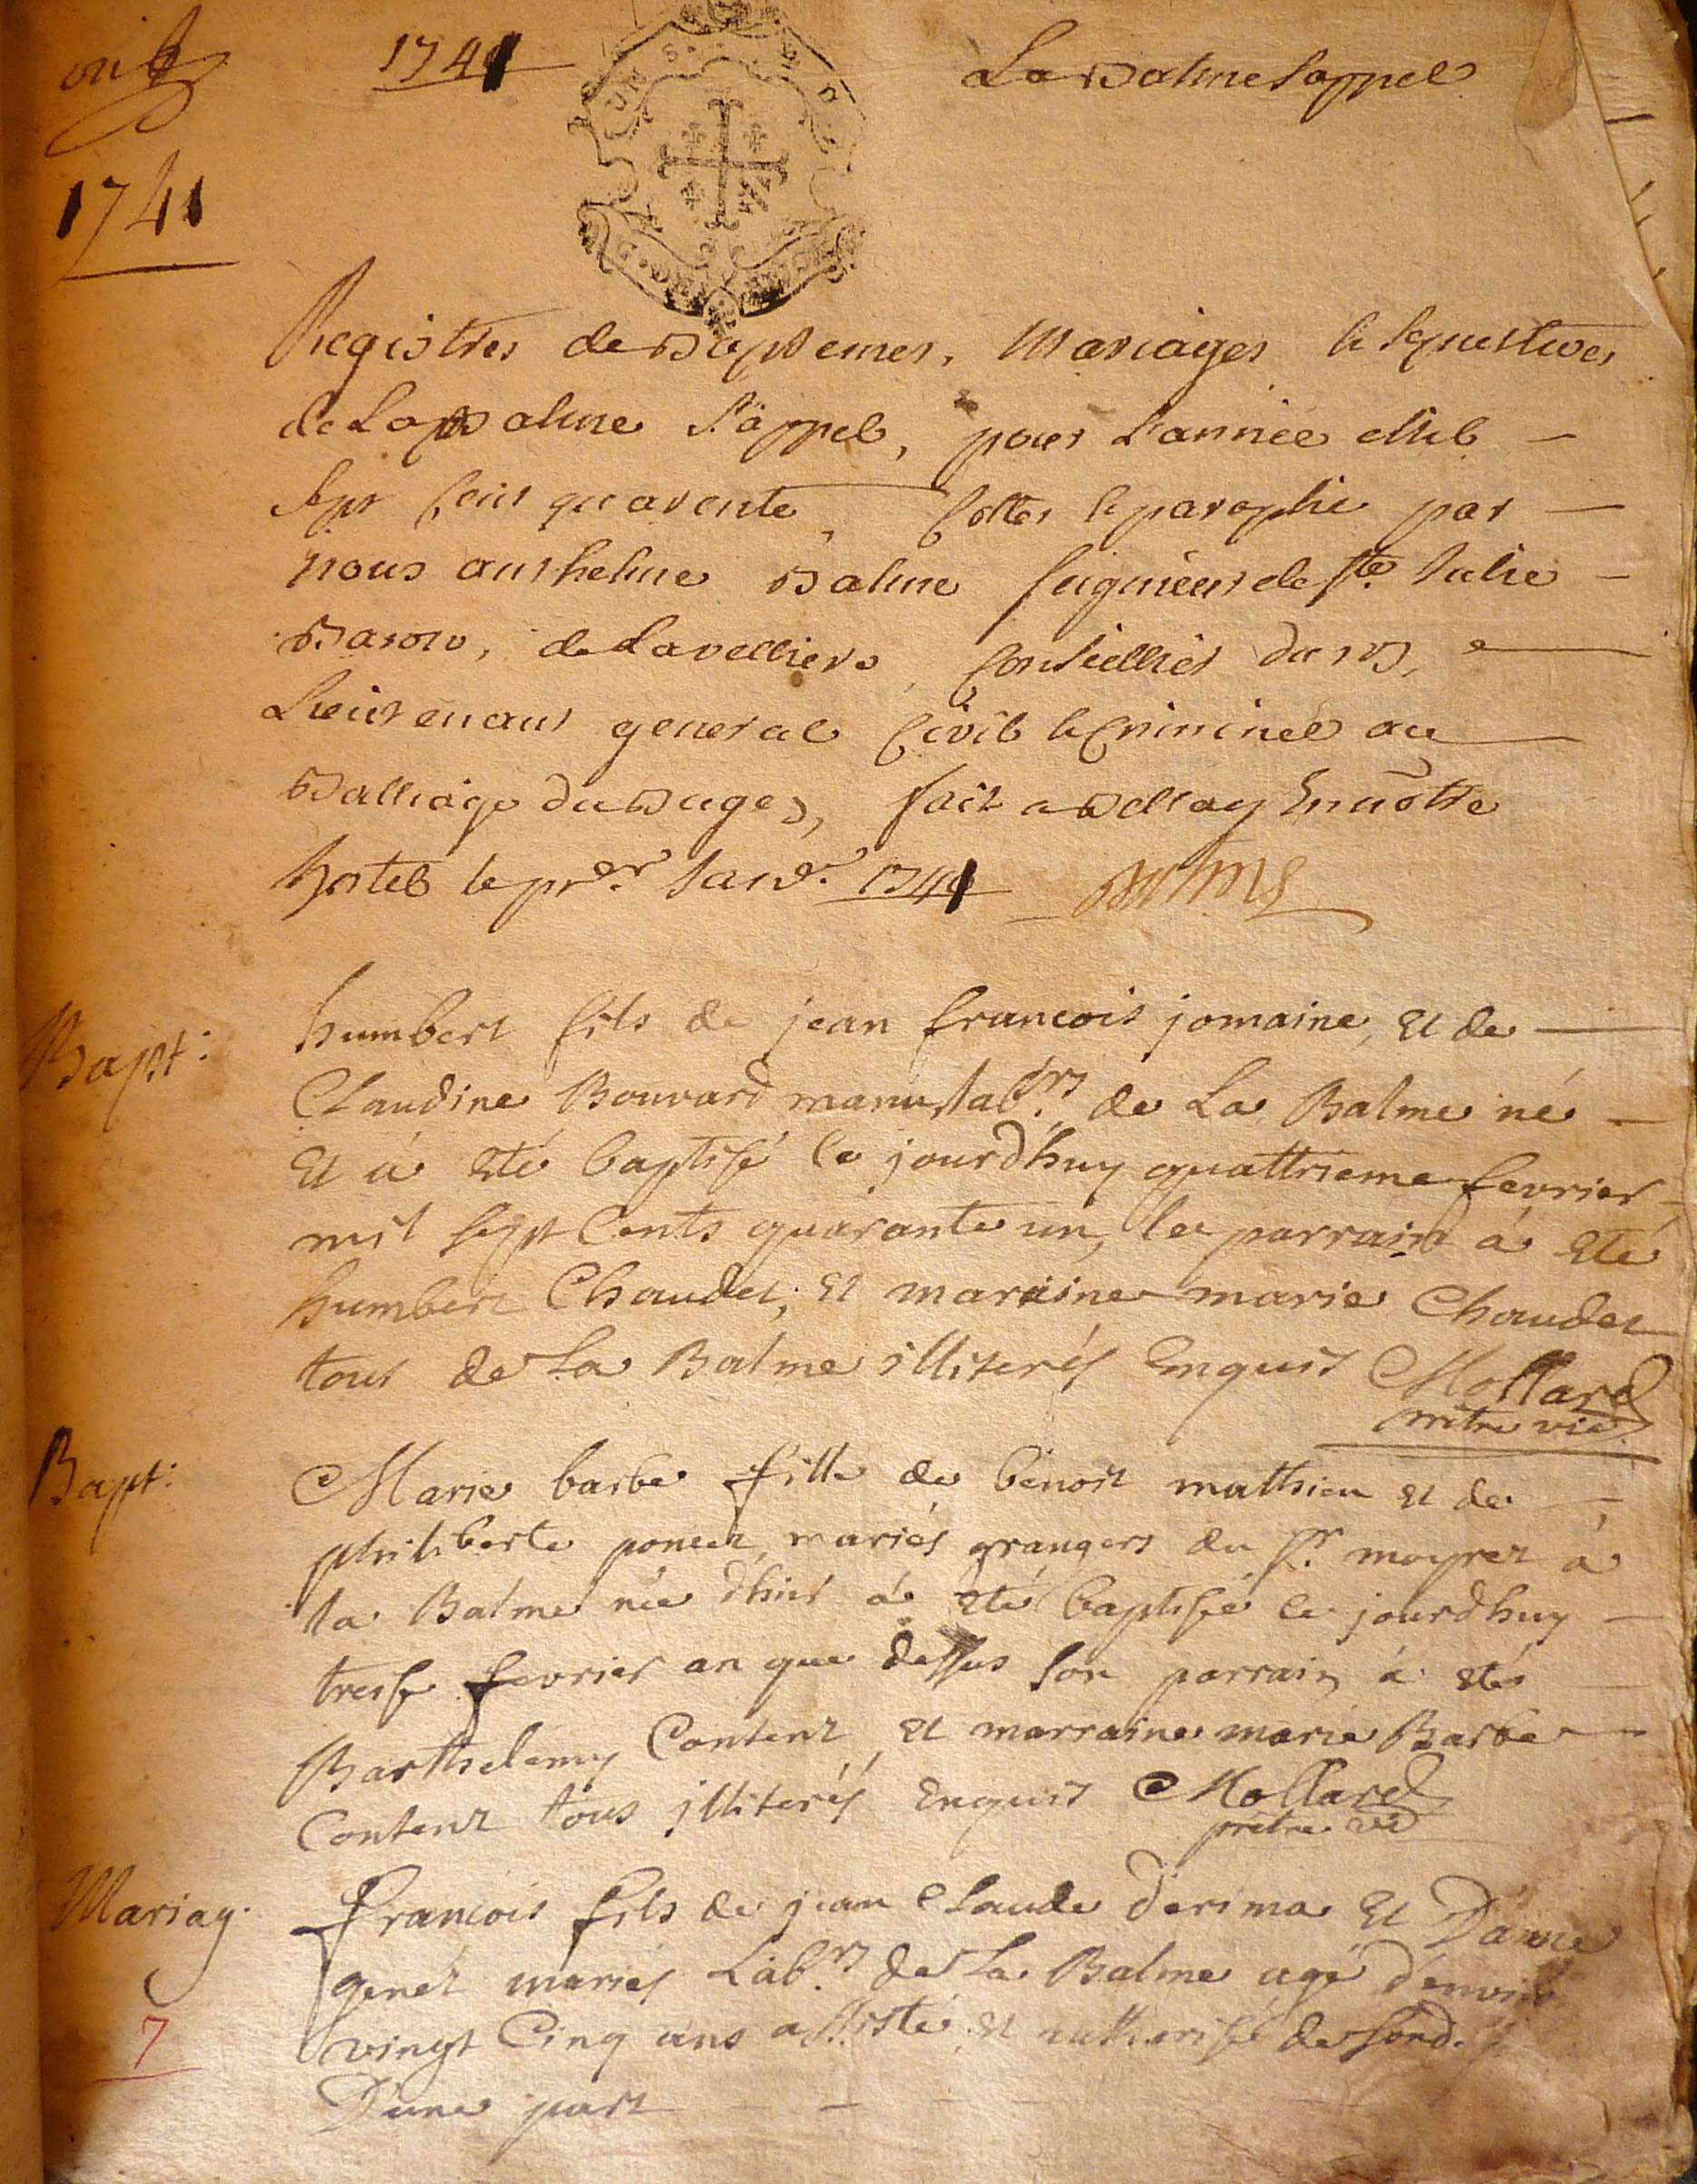 1741
La Balme Sappel
1741
Registres de Baptemes, Mariages & sepultures
de La Balme S'appel, pour L'année Mil
sept cent quarente, Cottés & paraphé par
nous anthelme Balme seigneur de Ste. Julie
Baron, de Lavelliere, Conseillier du R,
Lieutenant general Civil & Criminel au
Balliage du Buges, fait a Bellay En nôtre
hotel le pr.er Janv.er 1741 Balme
Bapt: humbert fils de jean francois jomaine, et de
Claudine Bouvard mariés lab.rs de La Balme né
Et á eté baptisé ce jourdhuy quattrieme fevrier
mil sept Cents quarante un, le parrain á eté
humbert Chaudet, et maraine marie Chaudet
tous de La Balme illiterés Enquis Mollard
prêtre vic.
Bapt: Marie barbe fille de benoit mathieu et de
philiberte poncet mariés grangers du Sr. moyret á
la Balme née d'hier á eté baptisée ce jourdhuy
treise fevrier an que dessus son parrain á eté
Barthelemy Content, et marraine marie Barbe
Content tous illiterés Enquis Mollard
prêtre vic
Mariag. francois fils de jean Claude derima Et D'anne
genét mariés Lab.rs de La Balme agé d'environ
7
vingt Cinq ans assisté et authorisé de sond.
D'une part